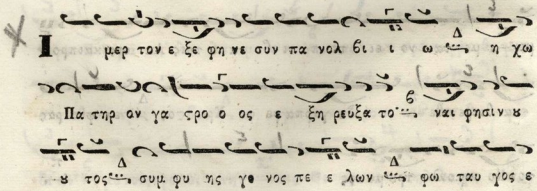 Ι μερ τον ε ξε φη νε συν πα νολ βι ι ω Δ η χω
Πα τηρ ον γα στρο ο ος ε ξη ρευξα το β ναι φησὶν ου
ου τος Δ συμ φυ ης γο νος πε ε λων Δ φω ταυ γος ε